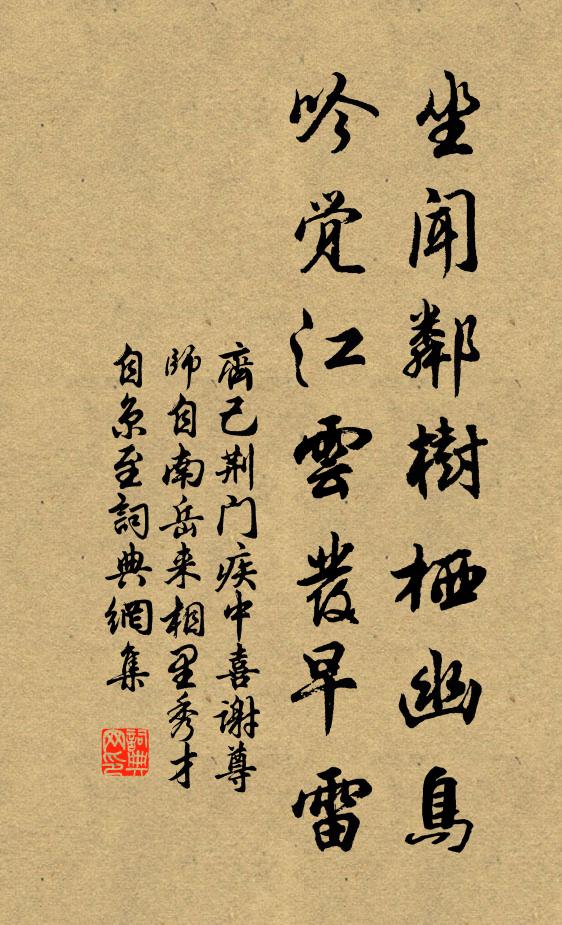 坐闻鄰樹栖幽鳥
吟觉江雲發早雷
齊己荆门疾中喜谢尊
師自南岳来相里秀才
自京至詞典網集
詞典网印